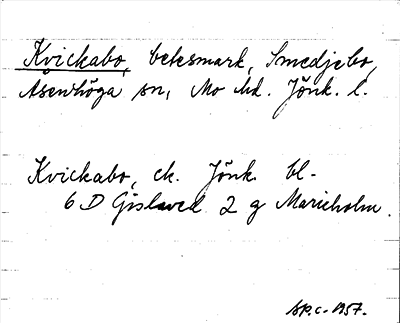 Kvickabo, betesmark, Smedjebo,
Åsenhöga sn, Mo hd. Jönk. l.
Kvickabo, ek. Jönk. bl.
6 D Gislaved 2 g Marieholm.
1957.